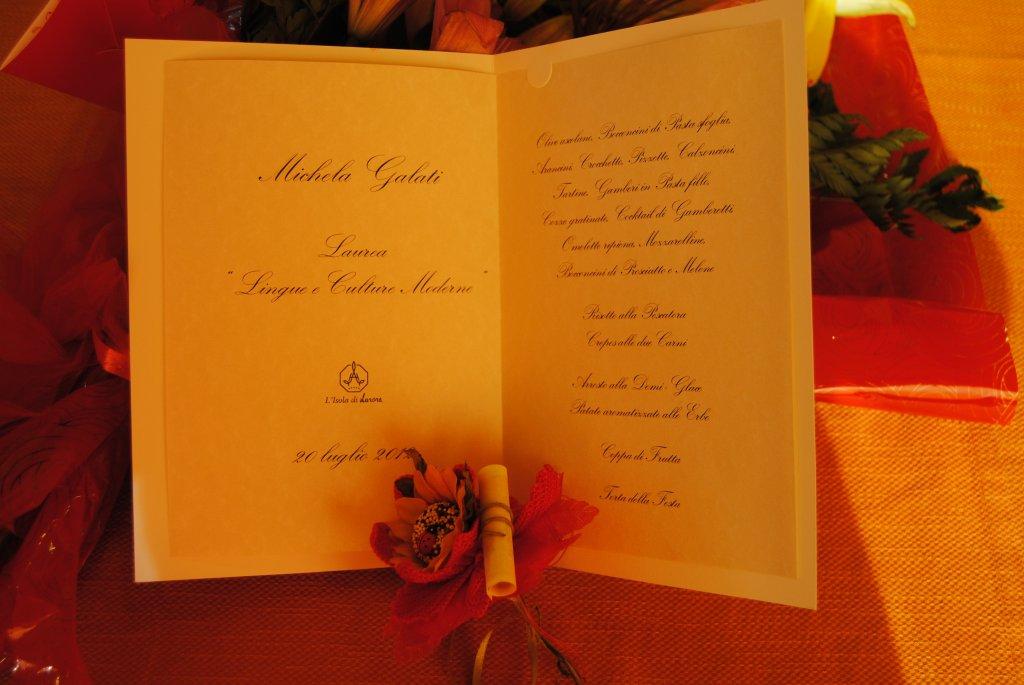 Michela Galati
Laurea
"Lingue e Culture Moderne"
L'Isola di Aurora
20 luglio 201
Olive ascolane, Bocconcini di Pasta sfoglia,
Arancini, Crocchette, Pizzette, Calzoncini,
Tartine, Gamberi in Pasta fillo,
Cozze gratinate, Cocktail di Gamberetti,
Omelette ripiena, Mozzarelline,
Bocconcini di Prosciutto e Melone
Risotto alla Pescatora
Crepes alle due Carni
Arrosto alla Demi-Glace
Patate aromatizzate alle Erbe
Coppa di Frutta
Torta della Festa